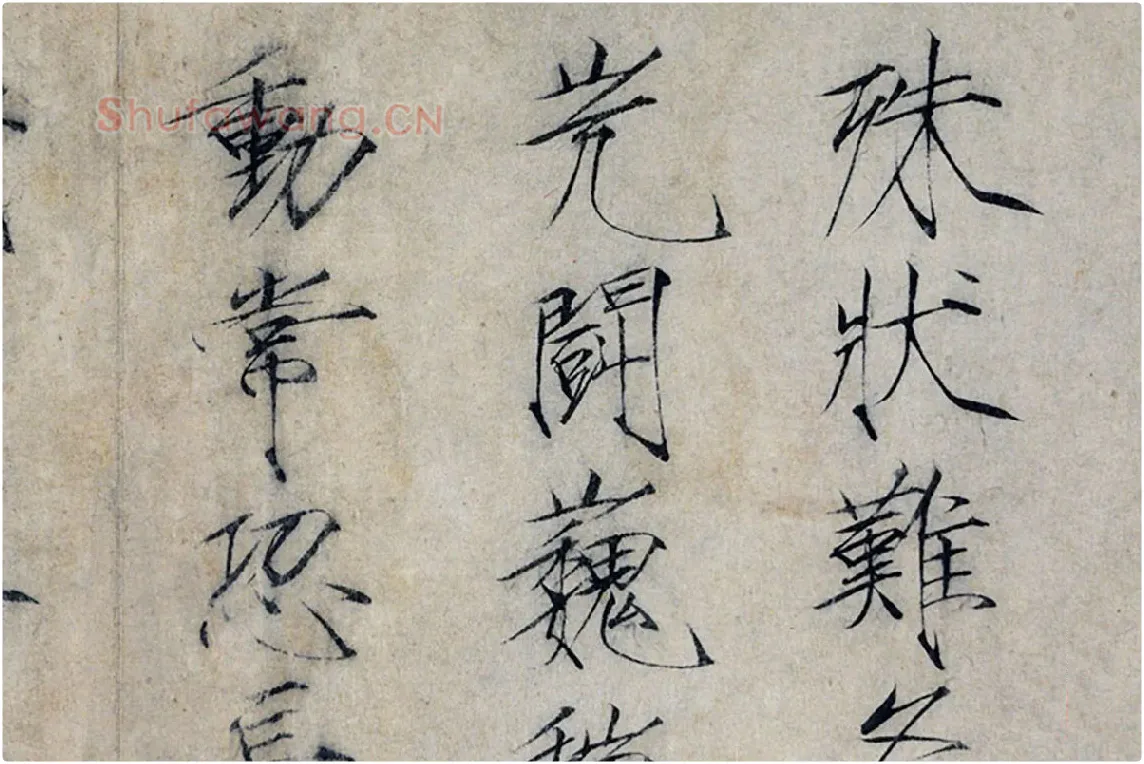 殊狀難名
岏闘巍
動常恐
Shufawang.CN